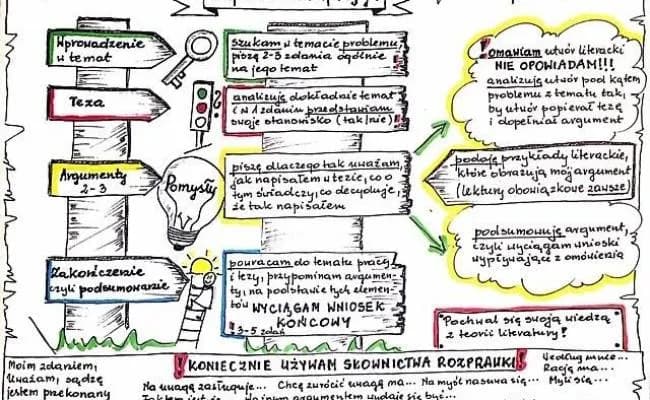 Wprowadzenie
w temat
szukam w temacie problemu,
piszę 2-3 zdania ogólnie
na jego temat
Teza
analizuję dokładnie temat
i w 1 zdaniu przedstawiam
swoje stanowisko (tak/nie)
Argumenty
2-3
Pomysły
piszę dlaczego tak uważam,
jak napisałem w tezie, co o
tym świadczy, co decyduje,
że tak napisałem
Zakończenie
czyli podsumowanie
powracam do tematu pracy
i tezy, przypominam argumen-
ty, na podstawie tych elemen-
tów WYCIĄGAM WNIOSEK
KOŃCOWY
3-5 zdań
! omawiam utwór literacki
NIE OPOWIADAM!!!
analizuję utwór pod kątem
problemu z tematu tak,
by utwór popierał tezę
i dopełniał argument
podaję przykłady literackie,
które obrazują mój argument
(lektury obowiązkowe zawsze)
podsumowuję argument,
czyli wyciągam wnioski
wypływające z omówienia
Pochwal się swoją wiedzą
z teorii literatury!
! KONIECZNIE UŻYWAM SŁOWNICTWA ROZPRAWKI!
Moim zdaniem,
Uważam, sądzę
jestem przekonany
Na uwagę zasługuje... Chcę zwrócić uwagę na... Na myśl nasuwa się...
Według mnie...
Rację ma...
Myli się...